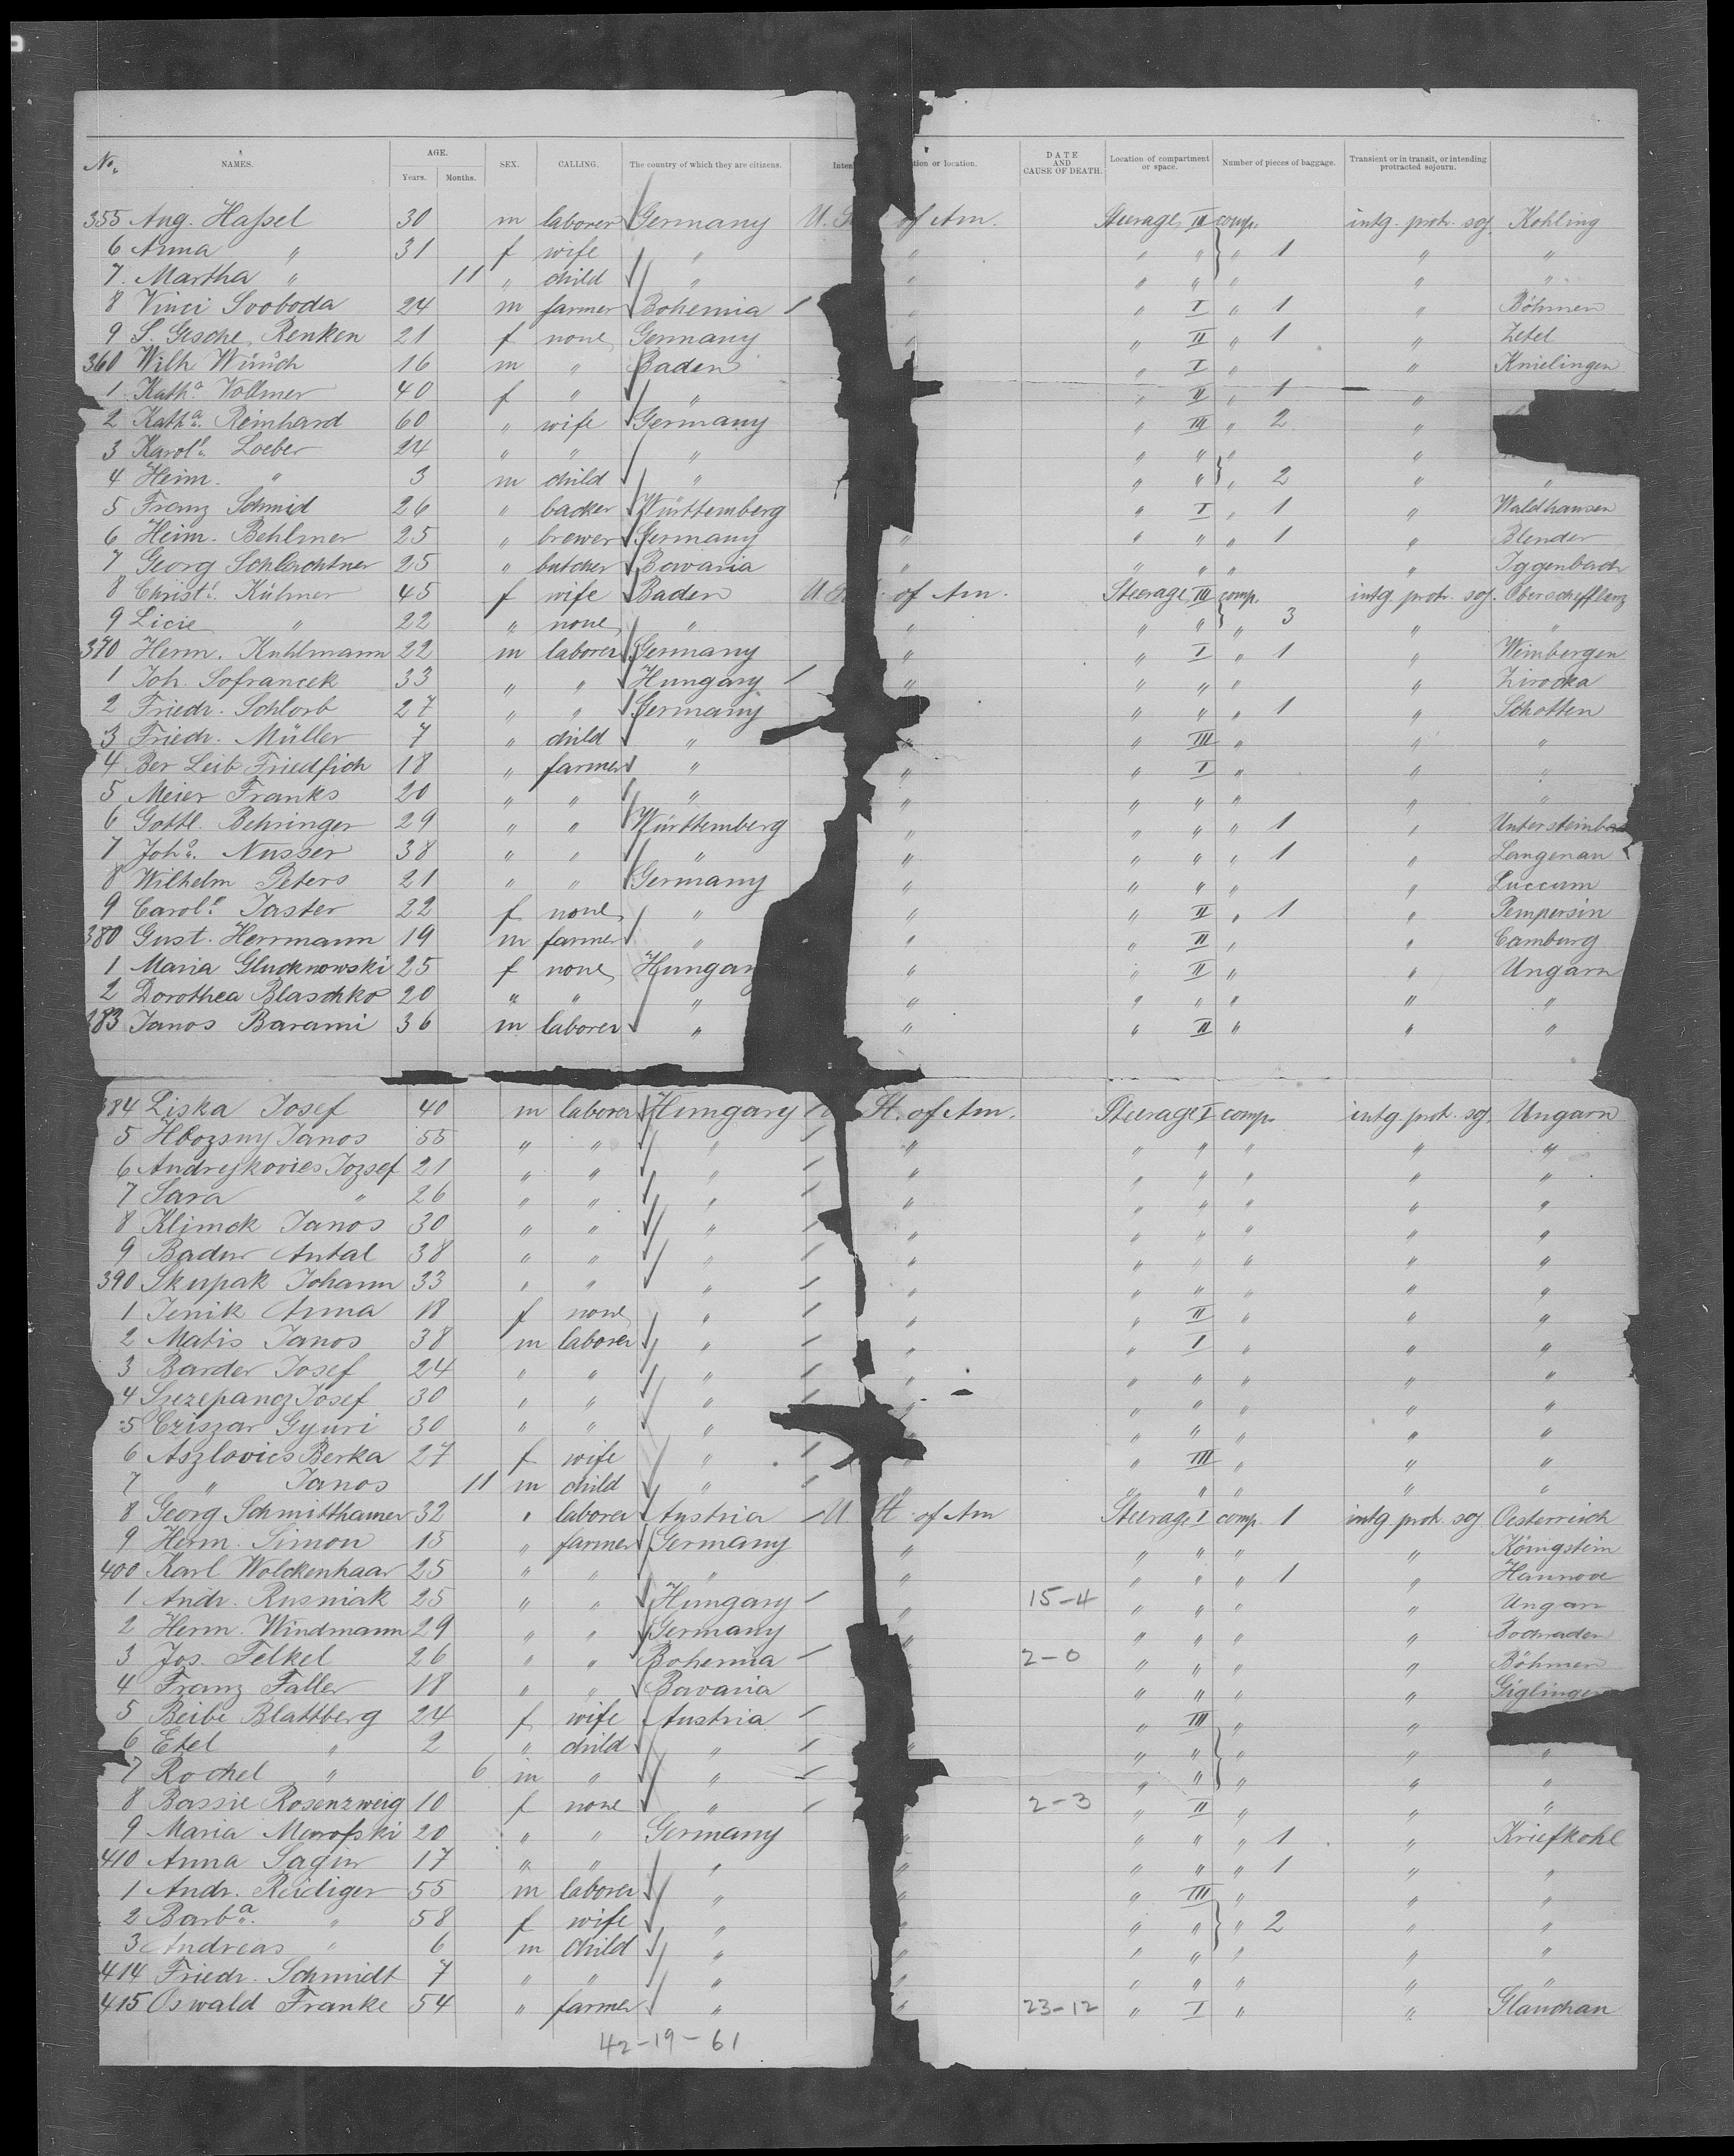 No. NAMES. AGE. Years. Months. SEX. CALLING. The country of which they are citizens. Inten tion or location. DATE AND CAUSE OF DEATH. Location of compartment or space. Number of pieces of baggage. Transient or in transit, or intending protracted sojourn.
355 Aug. Haßel 30 m laborer Germany U. S of Am. Steerage III comp. intg. protr. soj. Kohling
6 Anna " 31 f wife " " " " " 1 " "
7. Martha " 11 " child " " " " " " "
8 Vinci Svoboda 24 m farmer Bohemia " " I " 1 " Böhmen
9 S. Gesche Renken 21 f none Germany " " II " 1 " Zetel
360 Wilh. Wünsch 16 m " Baden " I " " Knielingen
1 Kath.a Vollmer 40 f " " " II " 1 "
2 Kath.a Reinhard 60 " wife Germany " III " 2 "
3 Karol.e Loeber 24 " " " " " " "
4 Heinr. " 3 m child " " " " 2 " "
5 Franz Schmid 26 " backer Württemberg " I " 1 " Waldhausen
6 Heinr. Behlmer 25 " brewer Germany " " " " 1 " Blender
7 Georg Schlachtner 25 " butcher Bavaria " " " " " Iggenbach
8 Christ. Kühner 45 f wife Baden U. S. of Am. Steerage III comp. intg protr. soj. Oberschefflenz
9 Licie " 22 " none " " " " " 3 " "
370 Herm. Kuhlmann 22 m laborer Germany " " I " 1 " Weinbergen
1 Joh. Sofrancek 33 " " Hungary " " " " " Zirocka
2 Friedr. Schlorb 27 " " Germany " " " 1 " Schotten
3 Friedr. Müller 7 " child " " " III " " "
4 Ber Leib Friedfich 18 " farmer " " " I " " "
5 Meier Franks 20 " " " " " " " " "
6 Gottl. Behringer 29 " " Württemberg " " " " 1 " Untersteinbach
7 Joh.s Nusser 38 " " " " " " " 1 " Langenau
8 Wilhelm Peters 21 " " Germany " " " " " Luccum
9 Carol.e Jaster 22 f none " " " II " 1 " Pempersin
380 Gust. Herrmann 19 m farmer " " " II " " Camburg
1 Maria Glucknowski 25 f none Hungar " " II " " Ungarn
2 Dorothea Blaschko 20 " " " " " " " " "
383 Janos Barami 36 m laborer " " " II " " "
384 Liska Josef 40 m laborer Hungary St. of Am. Steerage I comp. intg prot. soj. Ungarn
5 Hbozsny Janos 55 " " " " " " " " "
6 Andrejkovics Jozsef 21 " " " " " " " " "
7 Sara " 26 " " " " " " " " "
8 Klimck Janos 30 " " " " " " " " "
9 Badur Antal 38 " " " " " " " " "
390 Skupak Johann 33 " " " " " " " " "
1 Jenik Anna 18 f none " " " II " " "
2 Matis Janos 38 m laborer " " " I " " "
3 Barder Josef 24 " " " " " " " " "
4 Szezepancz Josef 30 " " " " " " " " "
5 Cziszar Gyuri 30 " " " " " " " "
6 Aszlovics Berka 27 f wife " " " III " " "
7 " Janos 11 m child " " " " " " "
8 Georg Schmitthamer 32 " laborer Austria U. St. of Am Steerage I comp. 1 intg prot. soj Oesterreich
9 Herm. Simon 15 " farmer Germany " " " " " Königstein
400 Karl Wolckenhaar 25 " " " " " " " 1 " Hannove
1 Andr. Rusniak 25 " " Hungary " 15-4 " " " " Ungarn
2 Herm. Windmann 29 " " Germany " " " " "
3 Jos. Felkel 26 " " Bohemia " 2-0 " " " " Böhmen
4 Franz Faller 18 " " Bavaria " " " " Giglingen
5 Beibe Blattberg 24 f wife Austria " III " "
6 Etel " 2 " child " " " " " " "
7 Rochel " 6 m " " " " " " "
8 Bassie Rosenzweig 10 f none " " 2-3 " II " " "
9 Maria Murofski 20 " " Germany " " " " 1 " Kriefkohl
410 Anna Sagur 17 " " " " " " " 1 " "
1 Andr. Reidiger 55 m laborer " " " III " " "
2 Barb.a " 58 f wife " " " " " 2 " "
3 Andreas " 6 m child " " " " " " "
414 Friedr. Schmidt 7 " " " " " " " " "
415 Oswald Franke 54 " farmer " " 23-12 " I " " Glauchau
42-19-61